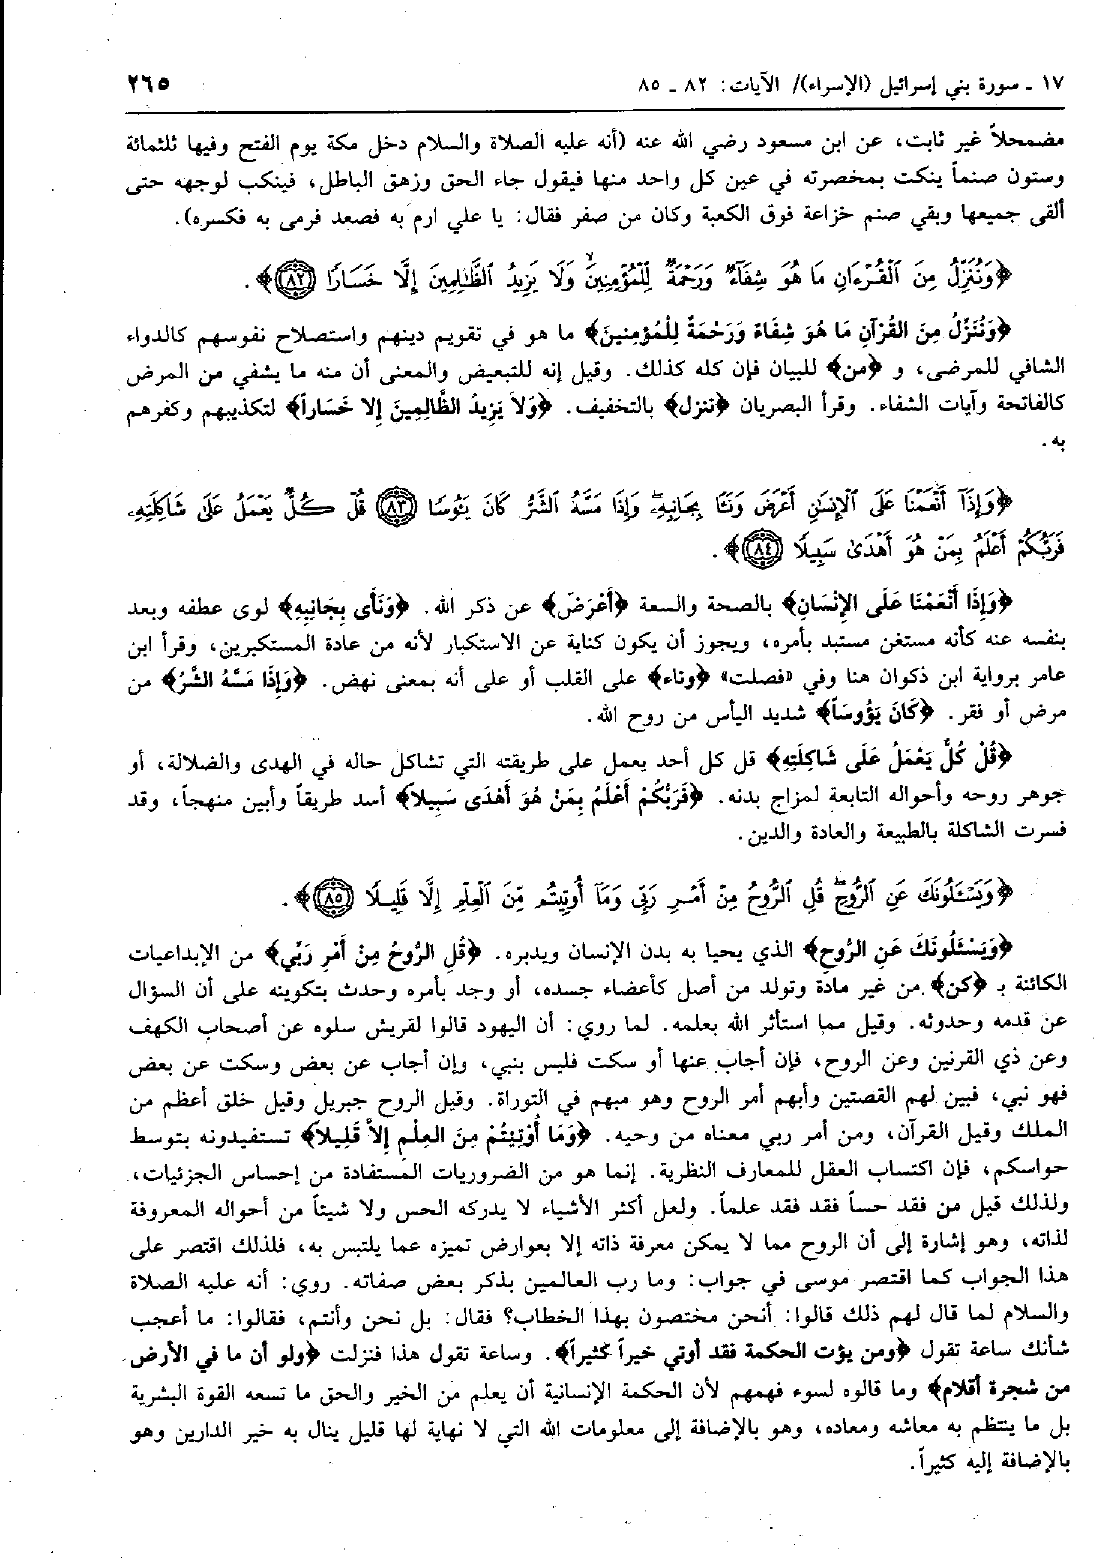 ١٧ ـ سورة بني إسرائيل (الإسراء)/ الآيات: ٨٢ ـ ٨٥ ٢٦٥
مضمحلاً غير ثابت، عن ابن مسعود رضي الله عنه (أنه عليه الصلاة والسلام دخل مكة يوم الفتح وفيها ثلثمائة
وستون صنماً ينكت بمخصرته في عين كل واحد منها فيقول جاء الحق وزهق الباطل، فينكب لوجهه حتى
ألقى جميعها وبقي صنم خزاعة فوق الكعبة وكان من صفر فقال: يا علي ارم به فصعد فرمى به فكسره).
﴿وَنُنَزِّلُ مِنَ ٱلْقُرْءَانِ مَا هُوَ شِفَآءٌ وَرَحْمَةٌ لِّلْمُؤْمِنِينَ ۙ وَلَا يَزِيدُ ٱلظَّٰلِمِينَ إِلَّا خَسَارًا ٨٢﴾.
﴿وَنُنَزِّلُ مِنَ القُرْآنِ مَا هُوَ شِفَاءٌ وَرَحْمَةٌ لِلْمُؤمِنينَ﴾ ما هو في تقويم دينهم واستصلاح نفوسهم كالدواء
الشافي للمرضى، و ﴿من﴾ للبيان فإن كله كذلك. وقيل إنه للتبعيض والمعنى أن منه ما يشفي من المرض
كالفاتحة وآيات الشفاء. وقرأ البصريان ﴿ننزل﴾ بالتخفيف. ﴿وَلاَ يَزِيدُ الظَّالِمِينَ إلا خَسَاراً﴾ لتكذيبهم وكفرهم
به.
﴿وَإِذَآ أَنْعَمْنَا عَلَى ٱلْإِنسَٰنِ أَعْرَضَ وَنَـَٔا بِجَانِبِهِۦ ۖ وَإِذَا مَسَّهُ ٱلشَّرُّ كَانَ يَـُٔوسًا ٨٣ قُلْ كُلٌّ يَعْمَلُ عَلَىٰ شَاكِلَتِهِۦ
فَرَبُّكُمْ أَعْلَمُ بِمَنْ هُوَ أَهْدَىٰ سَبِيلًا ٨٤﴾.
﴿وَإِذَا أَنْعَمْنَا عَلَى الإِنْسَانِ﴾ بالصحة والسعة ﴿أَعْرَضَ﴾ عن ذكر الله. ﴿وَنَأَى بِجَانِبِهِ﴾ لوى عطفه وبعد
بنفسه عنه كأنه مستغن مستبد بأمره، ويجوز أن يكون كناية عن الاستكبار لأنه من عادة المستكبرين، وقرأ ابن
عامر برواية ابن ذكوان هنا وفي «فصلت» ﴿وناء﴾ على القلب أو على أنه بمعنى نهض. ﴿وَإِذَا مَسَّهُ الشَّرُ﴾ من
مرض أو فقر. ﴿كَانَ يَؤُوسَاً﴾ شديد اليأس من روح الله.
﴿قُلْ كُلٌّ يَعْمَلُ عَلَى شَاكِلَتِهِ﴾ قل كل أحد يعمل على طريقته التي تشاكل حاله في الهدى والضلالة، أو
جوهر روحه وأحواله التابعة لمزاج بدنه. ﴿فَرَبُّكُمْ أَعْلَمُ بِمَنْ هُوَ أَهْدَى سَبِيلاً﴾ أسد طريقاً وأبين منهجاً، وقد
فسرت الشاكلة بالطبيعة والعادة والدين.
﴿وَيَسْـَٔلُونَكَ عَنِ ٱلرُّوحِ ۖ قُلِ ٱلرُّوحُ مِنْ أَمْرِ رَبِّى وَمَآ أُوتِيتُم مِّنَ ٱلْعِلْمِ إِلَّا قَلِيلًا ٨٥﴾.
﴿وَيَسْئَلُونَكَ عَنِ الرُّوحِ﴾ الذي يحيا به بدن الإنسان ويدبره. ﴿قُلِ الرُّوحُ مِنْ أَمْرِ رَبِّي﴾ من الإبداعيات
الكائنة بـ ﴿كن﴾ من غير مادة وتولد من أصل كأعضاء جسده، أو وجد بأمره وحدث بتكوينه على أن السؤال
عن قدمه وحدوثه. وقيل مما استأثر الله بعلمه. لما روي: أن اليهود قالوا لقريش سلوه عن أصحاب الكهف
وعن ذي القرنين وعن الروح، فإن أجاب عنها أو سكت فليس بنبي، وإن أجاب عن بعض وسكت عن بعض
فهو نبي، فبين لهم القصتين وأبهم أمر الروح وهو مبهم في التوراة. وقيل الروح جبريل وقيل خلق أعظم من
الملك وقيل القرآن، ومن أمر ربي معناه من وحيه. ﴿وَمَا أُوْتِيْتُمْ مِنَ العِلْمِ إِلاَّ قَلِيلاً﴾ تستفيدونه بتوسط
حواسكم، فإن اكتساب العقل للمعارف النظرية. إنما هو من الضروريات المستفادة من إحساس الجزئيات،
ولذلك قيل من فقد حساً فقد فقد علماً. ولعل أكثر الأشياء لا يدركه الحس ولا شيئاً من أحواله المعروفة
لذاته، وهو إشارة إلى أن الروح مما لا يمكن معرفة ذاته إلا بعوارض تميزه عما يلتبس به، فلذلك اقتصر على
هذا الجواب كما اقتصر موسى في جواب: وما رب العالمين بذكر بعض صفاته. روي: أنه عليه الصلاة
والسلام لما قال لهم ذلك قالوا: أنحن مختصون بهذا الخطاب؟ فقال: بل نحن وأنتم، فقالوا: ما أعجب
شأنك ساعة تقول ﴿ومن يؤت الحكمة فقد أوتي خيراً كثيراً﴾. وساعة تقول هذا فنزلت ﴿ولو أن ما في الأرض
من شجرة أقلام﴾ وما قالوه لسوء فهمهم لأن الحكمة الإنسانية أن يعلم من الخير والحق ما تسعه القوة البشرية
بل ما ينتظم به معاشه ومعاده، وهو بالإضافة إلى معلومات الله التي لا نهاية لها قليل ينال به خير الدارين وهو
بالإضافة إليه كثيراً.